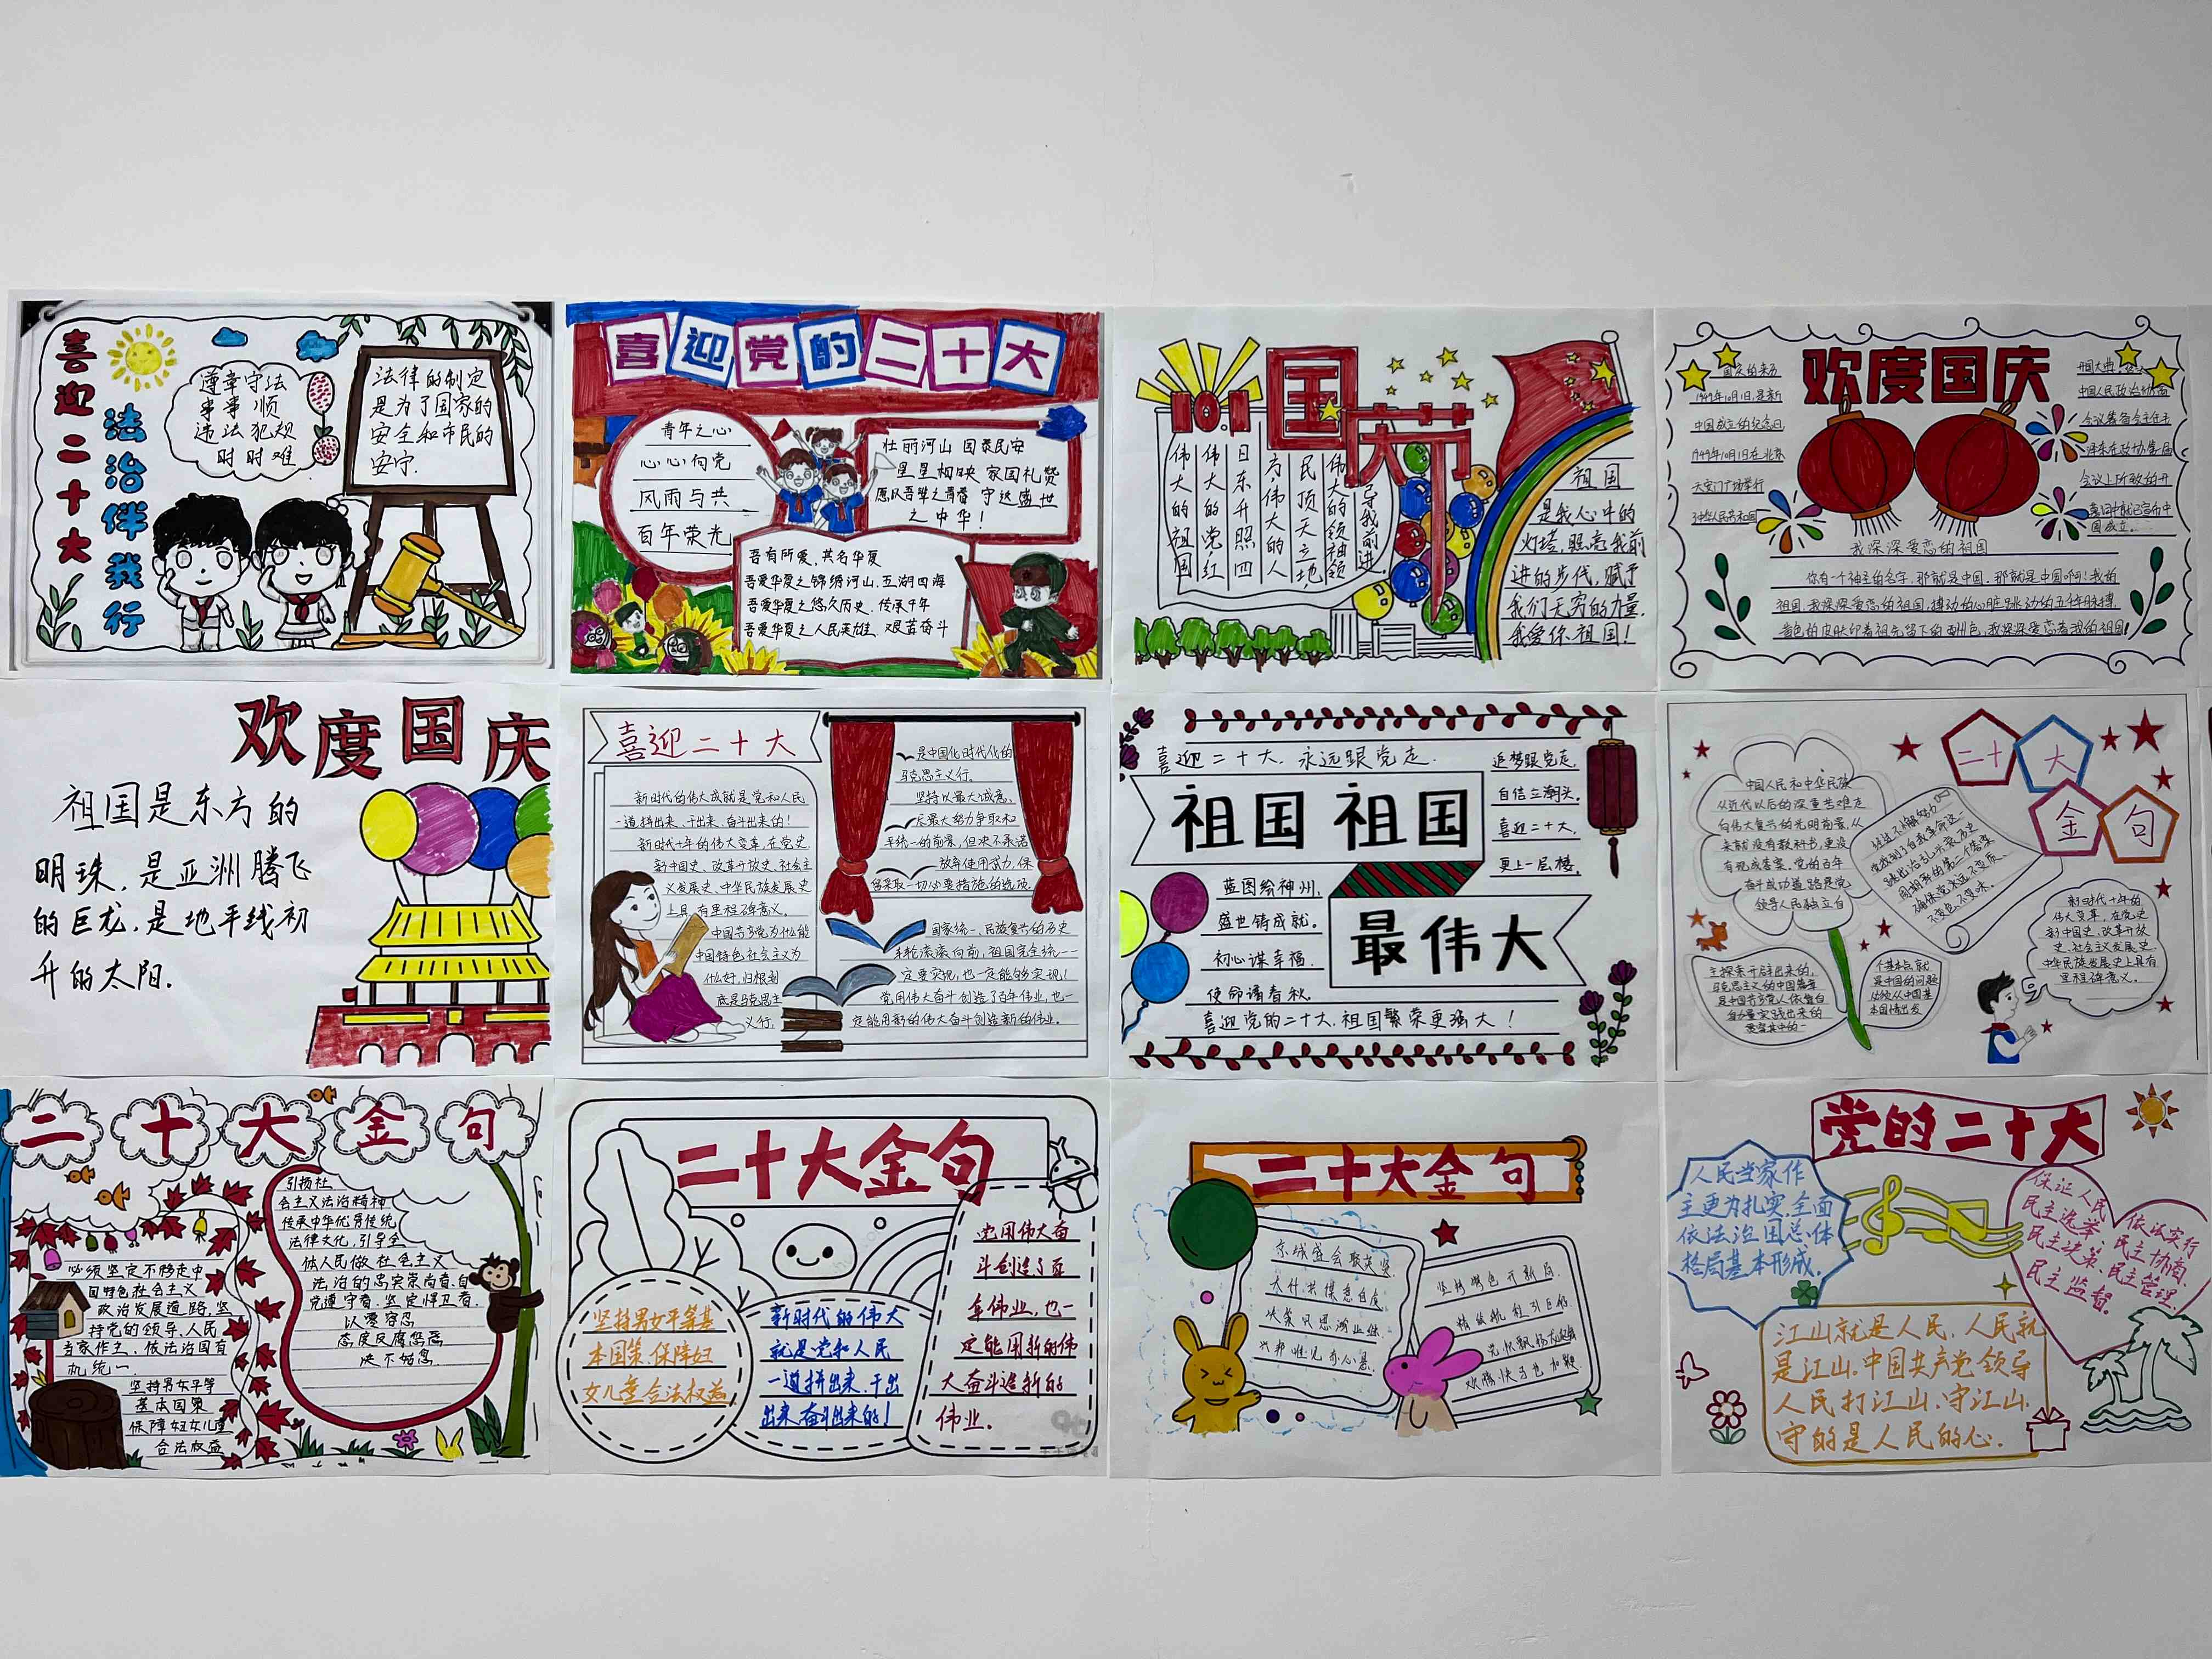 喜迎二十大
法治伴我行
遵章守法
事事顺
违法犯规
时时难
法律的制定
是为了国家的
安全和市民的
安宁.
喜迎党的二十大
青年之心
心心向党
风雨与共
百年荣光
壮丽河山 国泰民安
星星相映 家国礼赞
愿以吾辈之青春 守这盛世
之中华!
吾有所爱,其名华夏
吾爱华夏之锦绣河山,五湖四海
吾爱华夏之悠久历史,传承千年
吾爱华夏之人民英雄、艰苦奋斗
10.1
国庆节
伟大的祖国
伟大的党红
日东升照四
方,伟大的人
民顶天立地
伟大的领袖领
导我前进.
祖国
是我心中的
灯塔,照亮我前
进的步伐,赋予
我们无穷的力量.
我爱你,祖国!
欢度国庆
国庆的来历
1949年10月1日,是新
中国成立的纪念日,
1949年10月1日在北京
天安门广场举行
中国人民政治协商
会议筹备会主任毛
泽东在政协第一届
会议上所致的开
国成立.
我深深爱恋的祖国
祖国,我深深爱恋的祖国,搏动的心脏跳动的五千年脉搏,
欢度国庆
祖国是东方的
明珠,是亚洲腾飞
的巨龙,是地平线初
升的太阳.
喜迎二十大
新时代的伟大成就是党和人民
一道拼出来、干出来、奋斗出来的!
新时代十年的伟大变革,在党史、
新中国史、改革开放史、社会主
义发展史、中华民族发展史
上具有里程碑意义。
中国共产党为什么能
中国特色社会主义为
什么好,归根到
底是马克思主
义行,
是中国化时代化的
马克思主义行。
坚持以最大诚意、
尽最大努力争取和
平统一的前景,但决不承诺
放弃使用武力,保
留采取一切必要措施的选项.
国家统一、民族复兴的历史
车轮滚滚向前,祖国完全统一一
定要实现,也一定能够实现!
党用伟大奋斗创造了百年伟业,也一
定能用新的伟大奋斗创造新的伟业。
喜迎二十大,永远跟党走.
祖国 祖国
最伟大
追梦跟党走,
自信立潮头.
喜迎二十大,
更上一层楼.
蓝图绘神州,
盛世铸成就。
初心谋幸福.
使命谱春秋.
喜迎党的二十大,祖国繁荣更强大!
二十大金句
中国人民和中华民族
从近代以后的深重苦难走
向伟大复兴的光明前景,从
来就没有教科书,更没
有现成答案。党的百年
奋斗成功道路是党
领导人民独立自
主探索开辟出来的,
马克思主义的中国篇章
是中国共产党人依靠自
身力量实践出来的
贯穿其中的一
个基本点就
是中国的问题
必须从中国基
本国情出发
经过不懈努力
党找到了自我革命这一
跳出治乱兴衰历史
周期率的第二个答案
确保党永远不变质、
不变色、不变味。
新时代十年的
伟大变革,在党史
新中国史、改革开放
史、社会主义发展史、
中华民族发展史上具有
里程碑意义。
二十大金句
必须坚定不移走中
国特色社会主义
政治发展道路,坚
持党的领导、人民
当家作主、依法治国有
机统一
坚持男女平等
基本国策
保障妇女儿童
合法权益
引扬社
会主义法治精神
传承中华优秀传统
法律文化,引导全
体人民做社会主义
法治的忠实崇尚者、自
觉遵守者、坚定捍卫者.
以零容忍
态度反腐惩恶
决不姑息
二十大金句
坚持男女平等基
本国策,保障妇
女儿童合法权益
新时代的伟大
就是党和人民
一道拼出来、干出
出来、奋斗出来的!
党用伟大奋
斗创造了百
年伟业,也一
定能用新的伟
大奋斗造新的
伟业。
二十大金句
坚持特色开新局
党的二十大
人民当家作
主更为扎实,全面
依法治国总体
格局基本形成.
保证人民
民主选举、
民主决策、
民主监督.
依法实行
民主协商、
民主管理、
江山就是人民,人民就
是江山.中国共产党领导
人民打江山、守江山,
守的是人民的心.